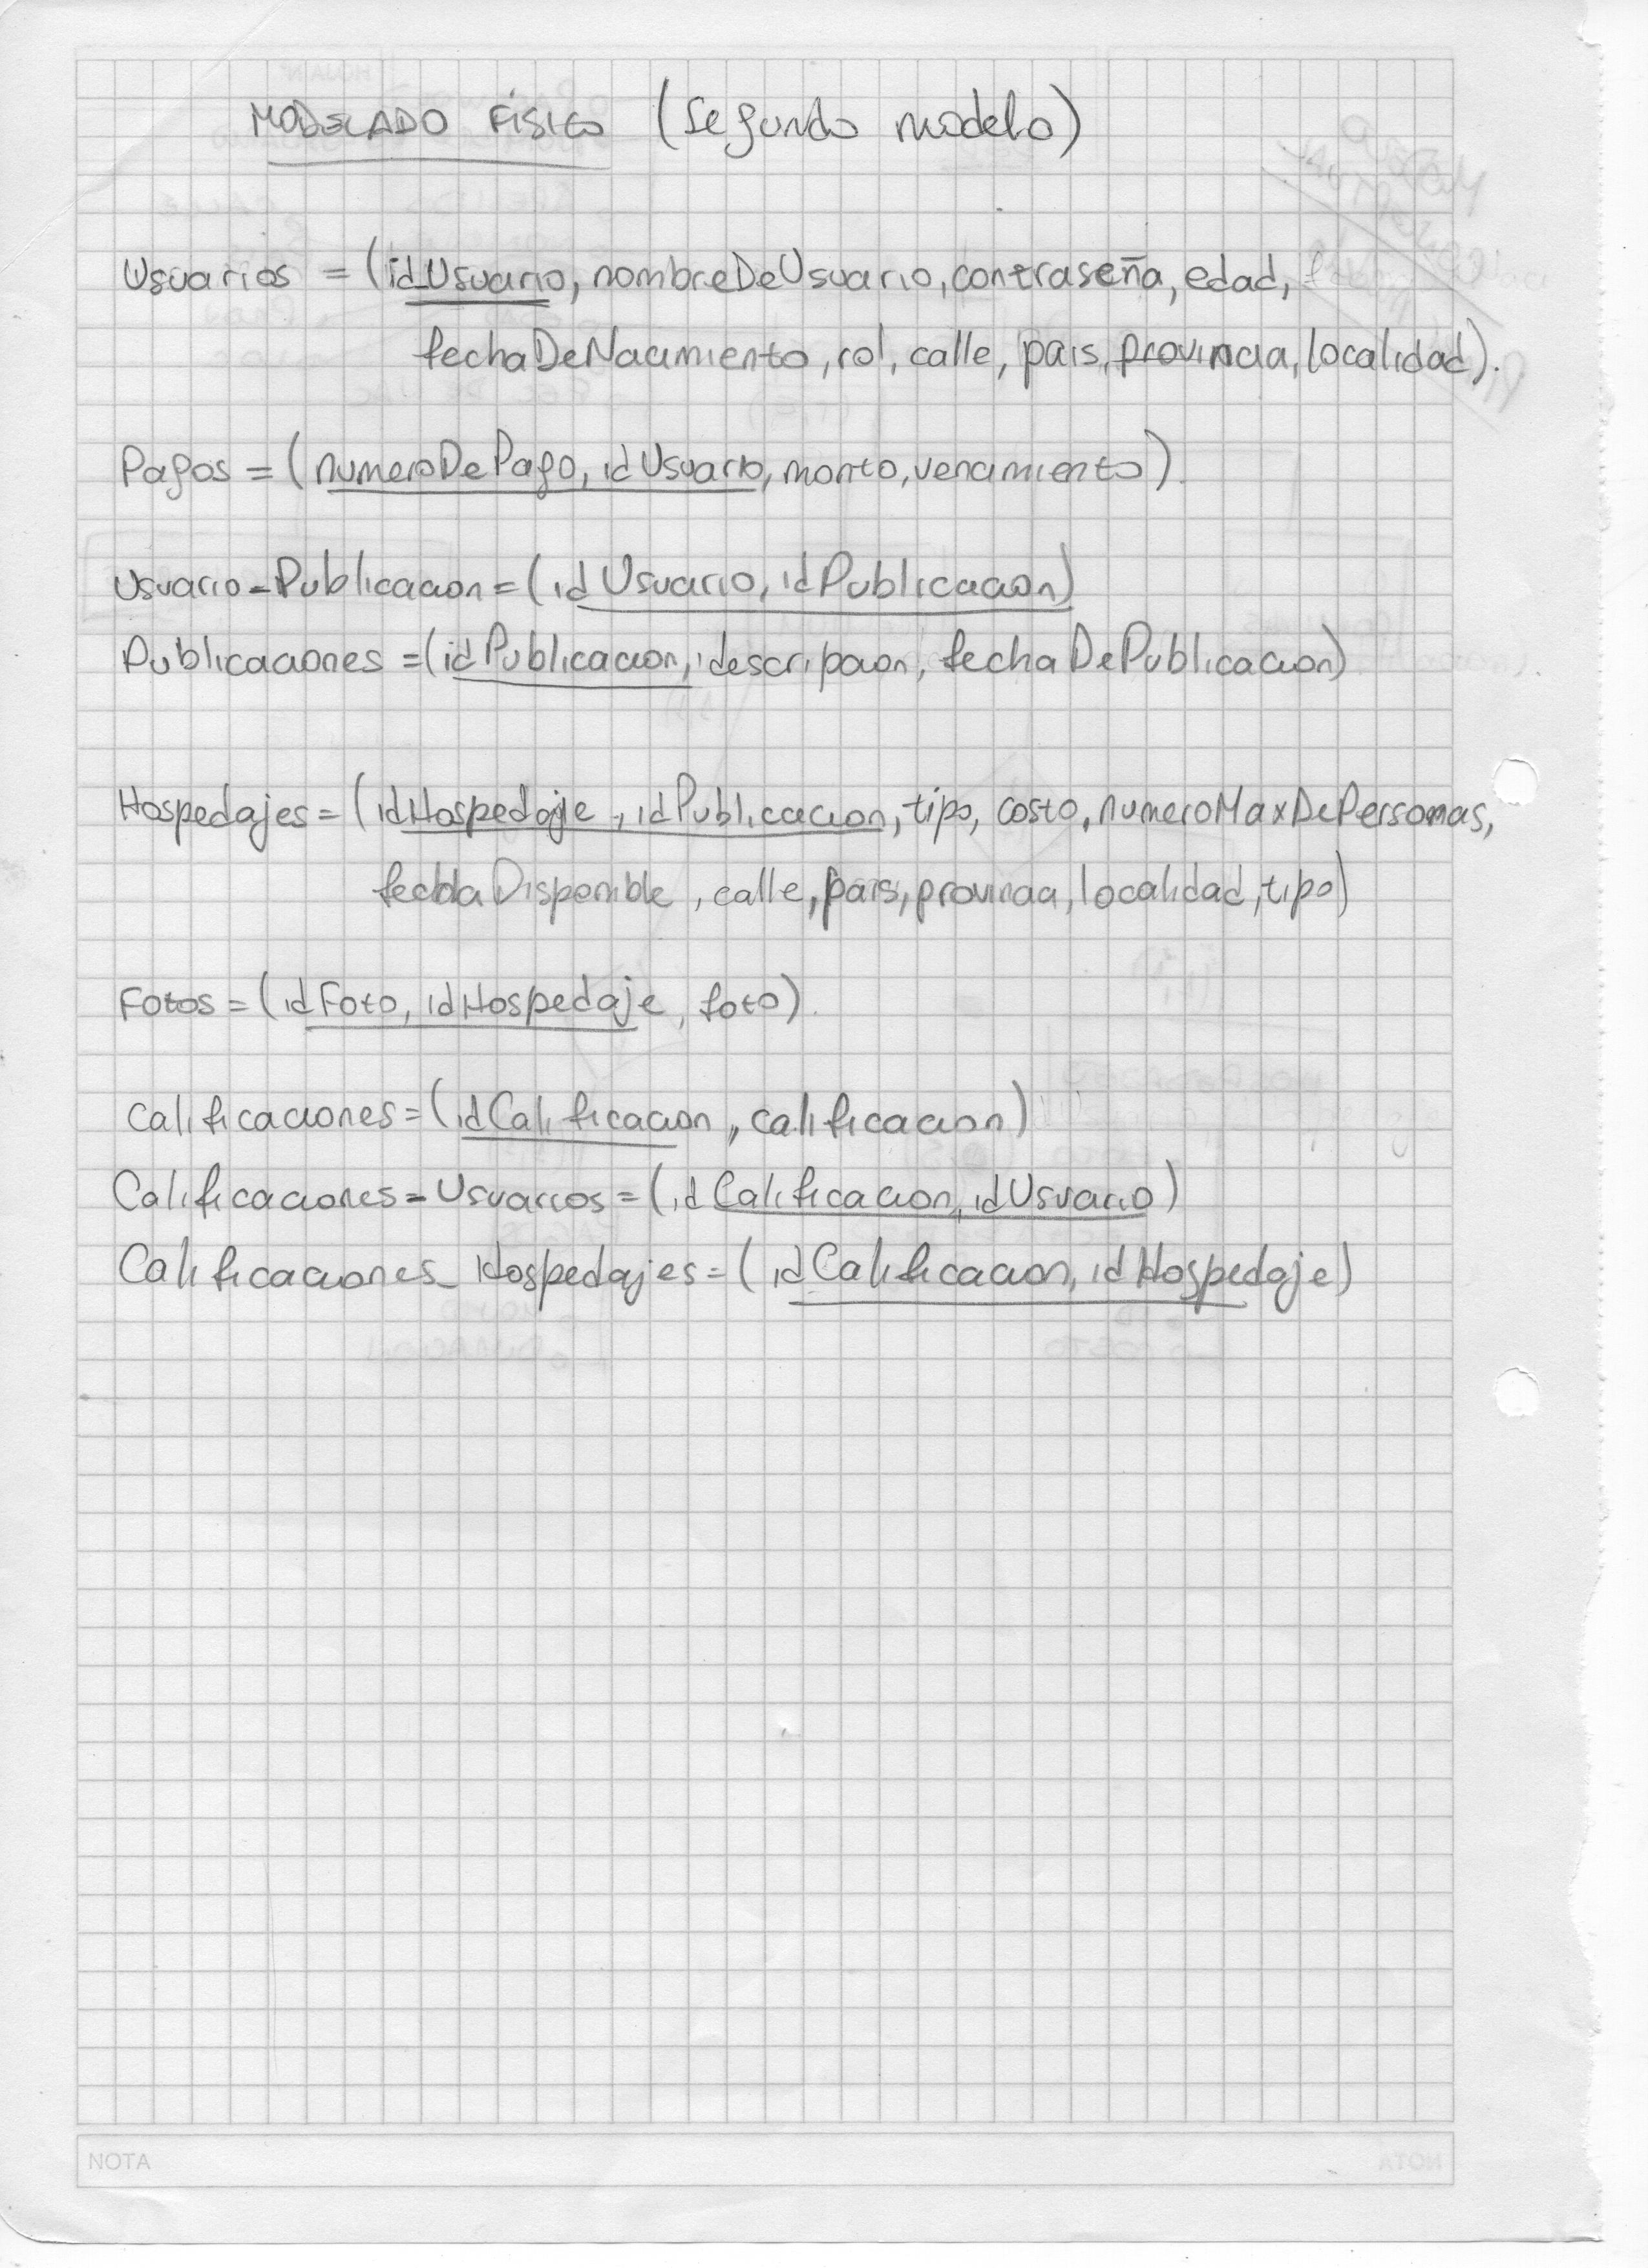 MODELADO FÍSICO (Segundo modelo)
Usuarios = (idUsuario, nombreDeUsuario, contraseña, edad,
fechaDeNacimiento, rol, calle, pais, provincia, localidad).
Pagos = (numeroDePago, idUsuario, monto, vencimiento).
Usuario-Publicacion = (idUsuario, idPublicacion)
Publicaciones = (idPublicacion, descripcion, fechaDePublicacion)
Hospedajes = (idHospedaje, idPublicacion, tipo, costo, numeroMaxDePersonas,
fechaDisponible, calle, pais, provincia, localidad, tipo)
Fotos = (idFoto, idHospedaje, foto).
Calificaciones = (idCalificacion, calificacion)
Calificaciones-Usuarios = (idCalificacion, idUsuario)
Calificaciones_Hospedajes = (idCalificacion, idHospedaje)
NOTA